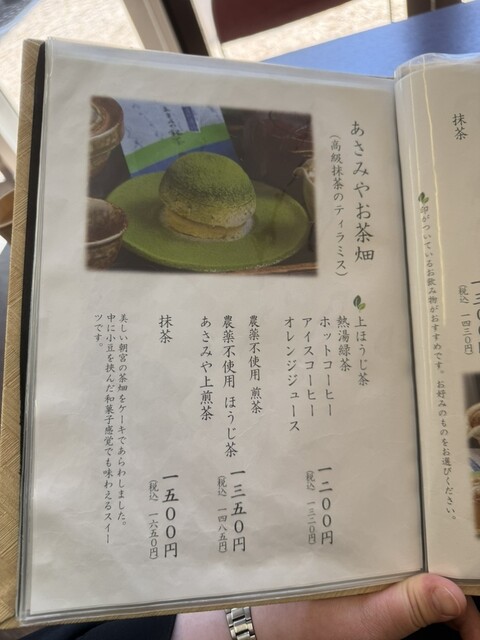 抹茶
印がついているお飲み物がおすすめです。お好みのものをお選びください。
(税込 一四三〇円)
あさみやお茶畑
(高級抹茶のティラミス)
上ほうじ茶
熱湯緑茶
ホットコーヒー
アイスコーヒー
オレンジジュース
一二〇〇円
(税込 一三二〇円)
農薬不使用 煎茶
農薬不使用 ほうじ茶
あさみや上煎茶
一三五〇円
(税込 一四八五円)
抹茶
一五〇〇円
(税込 一六五〇円)
美しい朝宮の茶畑をケーキであらわしました。
中に小豆を挟んだ和菓子感覚でも味わえるスイー
ツです。